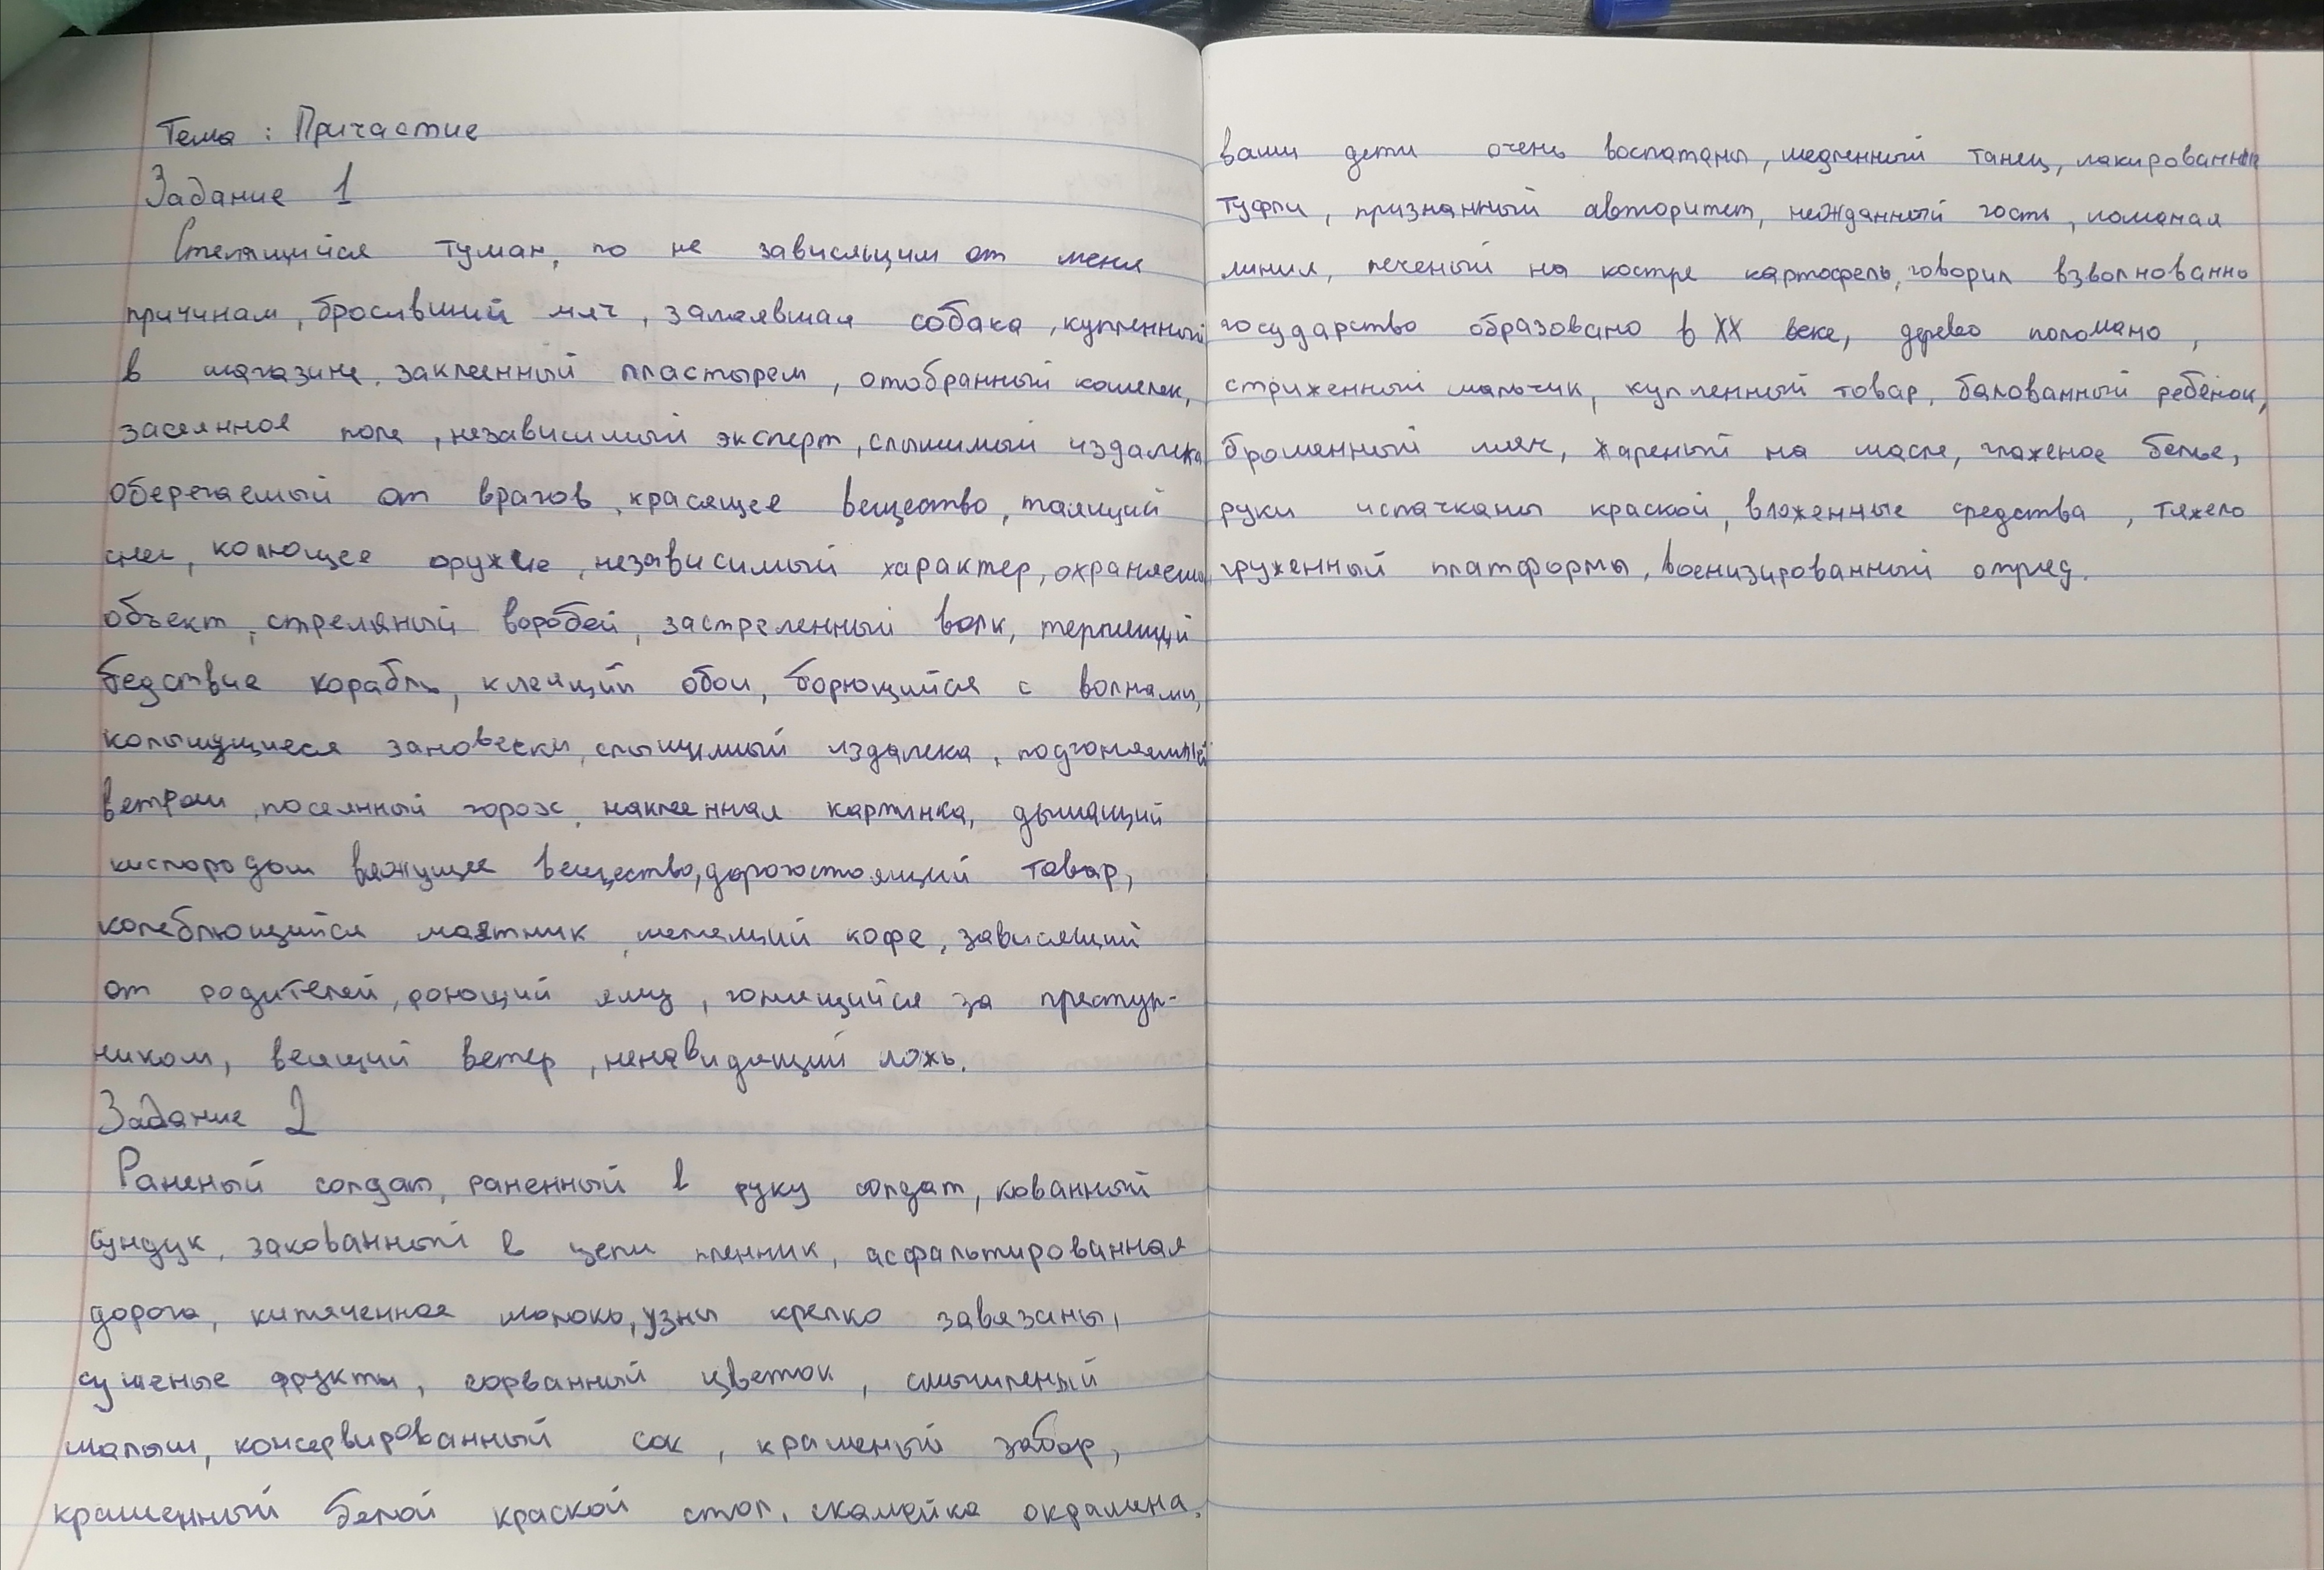 Тема : Причастие
Задание 1
Стелящийся туман, по не зависящим от меня
причинам, бросивший мяч, залаявшая собака, купленный
в магазине, заклеенный пластырем, отобранный кошелек,
засеянное поле, независимый эксперт, слышимый издалека
оберегаемый от врагов, красящее вещество, таящий
снег, колющее оружие, независимый характер, охраняемый
объект, стреляный воробей, застреленный волк, терпящий
бедствие корабль, клеящий обои, борющийся с волнами,
колышущиеся занавески, слышимый издалека, подгоняемый
ветром, посеянный горох, наклеенная картинка, дышащий
кислородом вяжущее вещество, дорогостоящий товар,
колеблющийся маятник, мелящий кофе, зависящий
от родителей, роющий яму, гонящийся за преступ-
ником, веящий ветер, ненавидящий ложь.
Задание 2
Раненый солдат, раненный в руку солдат, кованный
сундук, закованный в цепи пленник, асфальтированная
дорога, кипяченное молоко, узлы крепко завязаны,
сушеные фрукты, сорванный цветок, смышленый
малыш, консервированный сок, крашеный забор,
крашенный белой краской стол, скамейка окрашена,
ваши дети очень воспитаны, медленный танец, лакированные
туфли, признанный авторитет, нежданный гость, ломаная
линия, печеный на костре картофель, говорил взволнованно
государство образовано в XX веке, дерево поломано,
стриженный мальчик, купленный товар, балованный ребёнок,
брошенный мяч, жареный на масле, глаженое белье,
руки испачканы краской, вложенные средства, тяжело
груженный платформы, военизированный отряд.